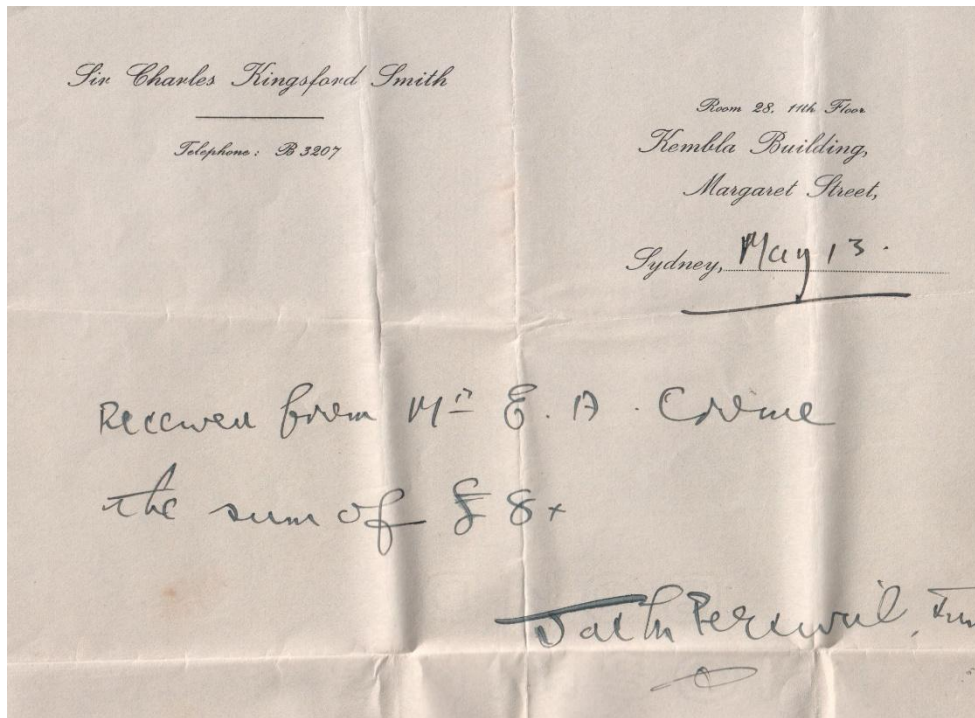 Sir Charles Kingsford Smith
Telephone: B 3207
Room 28. 11th Floor
Kembla Building,
Margaret Street,
Sydney, May 13.
Received from Mr E. A. Crome
the sum of £8
John